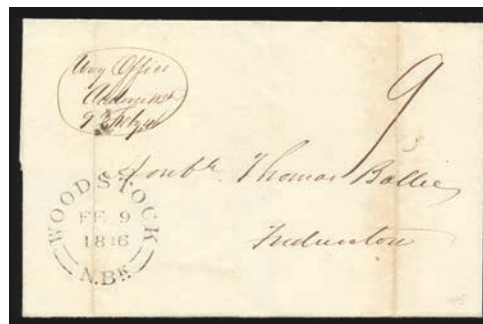 Way Office
9
Honble Thomas Baillie
Fredericton
WOODSTOCK
FE 9
1846
N.Bk